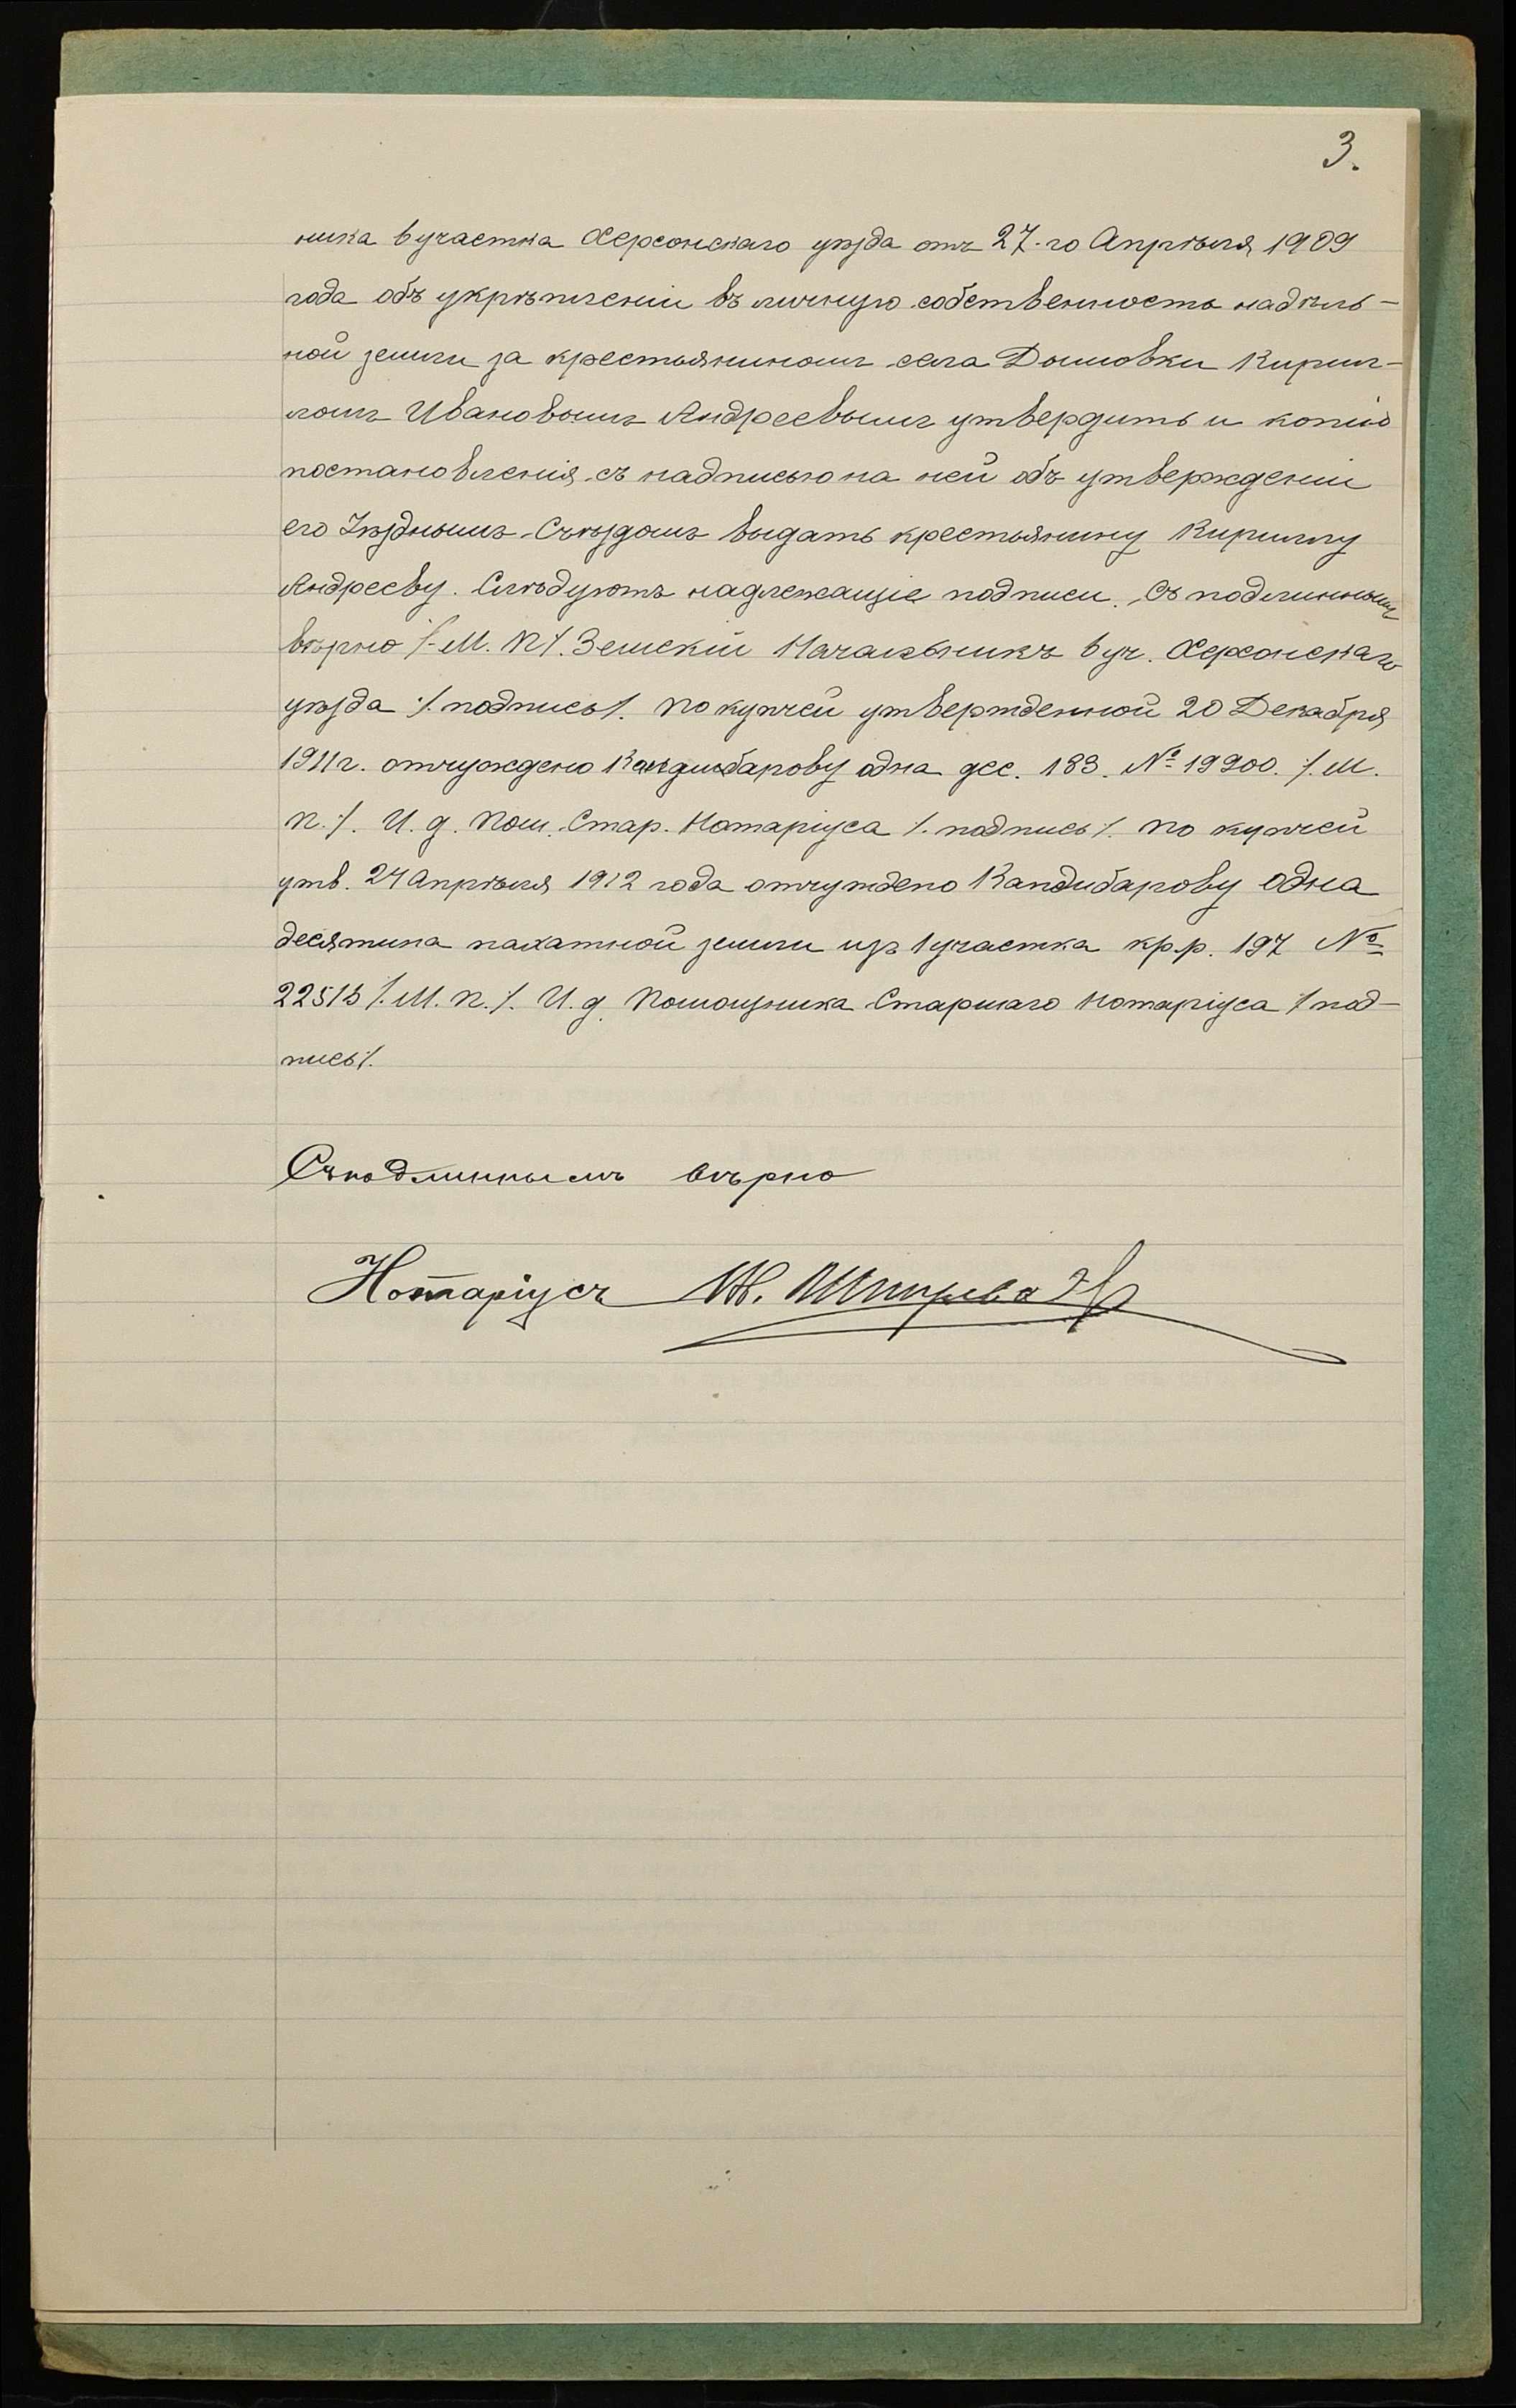 3.
ника 6 участка Херсонскаго уѣзда отъ 27-го Апрѣля 1909
года объ укрѣпленіи въ личную собственность надѣль-
ной земли за крестьяниномъ села Домовки Кирил-
ломъ Ивановымъ Андреевымъ утвердить и копію
постановленія съ надписью на ней объ утвержденіи
его Уѣзднымъ Съѣздомъ выдать крестьянину Кириллу
Андрееву. Слѣдуютъ надлежащіе подписи. Съ подлиннымъ
вѣрно /. М. П /. Земскій Начальникъ 6 уч. Херсонскаго
уѣзда /. подпись /. По купчей утвержденной 20 Декабря
1911 г. отчуждено Кандибарову одна дес. 183. № 19900. /. М.
П. /. И. д. Пом. Стар. Нотаріуса /. подпись /. По купчей
утв. 24 Апрѣля 1912 года отчуждено Кандибарову одна
десятина пахатной земли изъ 1 участка кр.р. 197 №
22513 /. М. П. /. И. д. Помощника Старшаго Нотаріуса /. под-
пись /.
Съ подлиннымъ вѣрно
Нотаріусъ